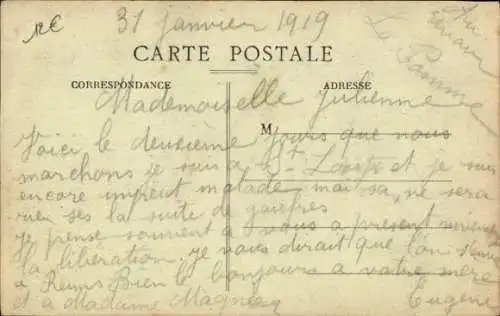 31 janvier 1919
CARTE POSTALE
CORRESPONDANCE
ADRESSE
Mademoiselle Julienne
M
Voici le deuxième jours que nous
marchons je suis a St Loup et je suis
encore un peut malade mai sa ne sera
rien ses la suite de
je pense souvent a vous a present vivement
la libération je vous dirait que l'on
a Reims Bien le bonjours a votre mère
et a Madame
Eugène